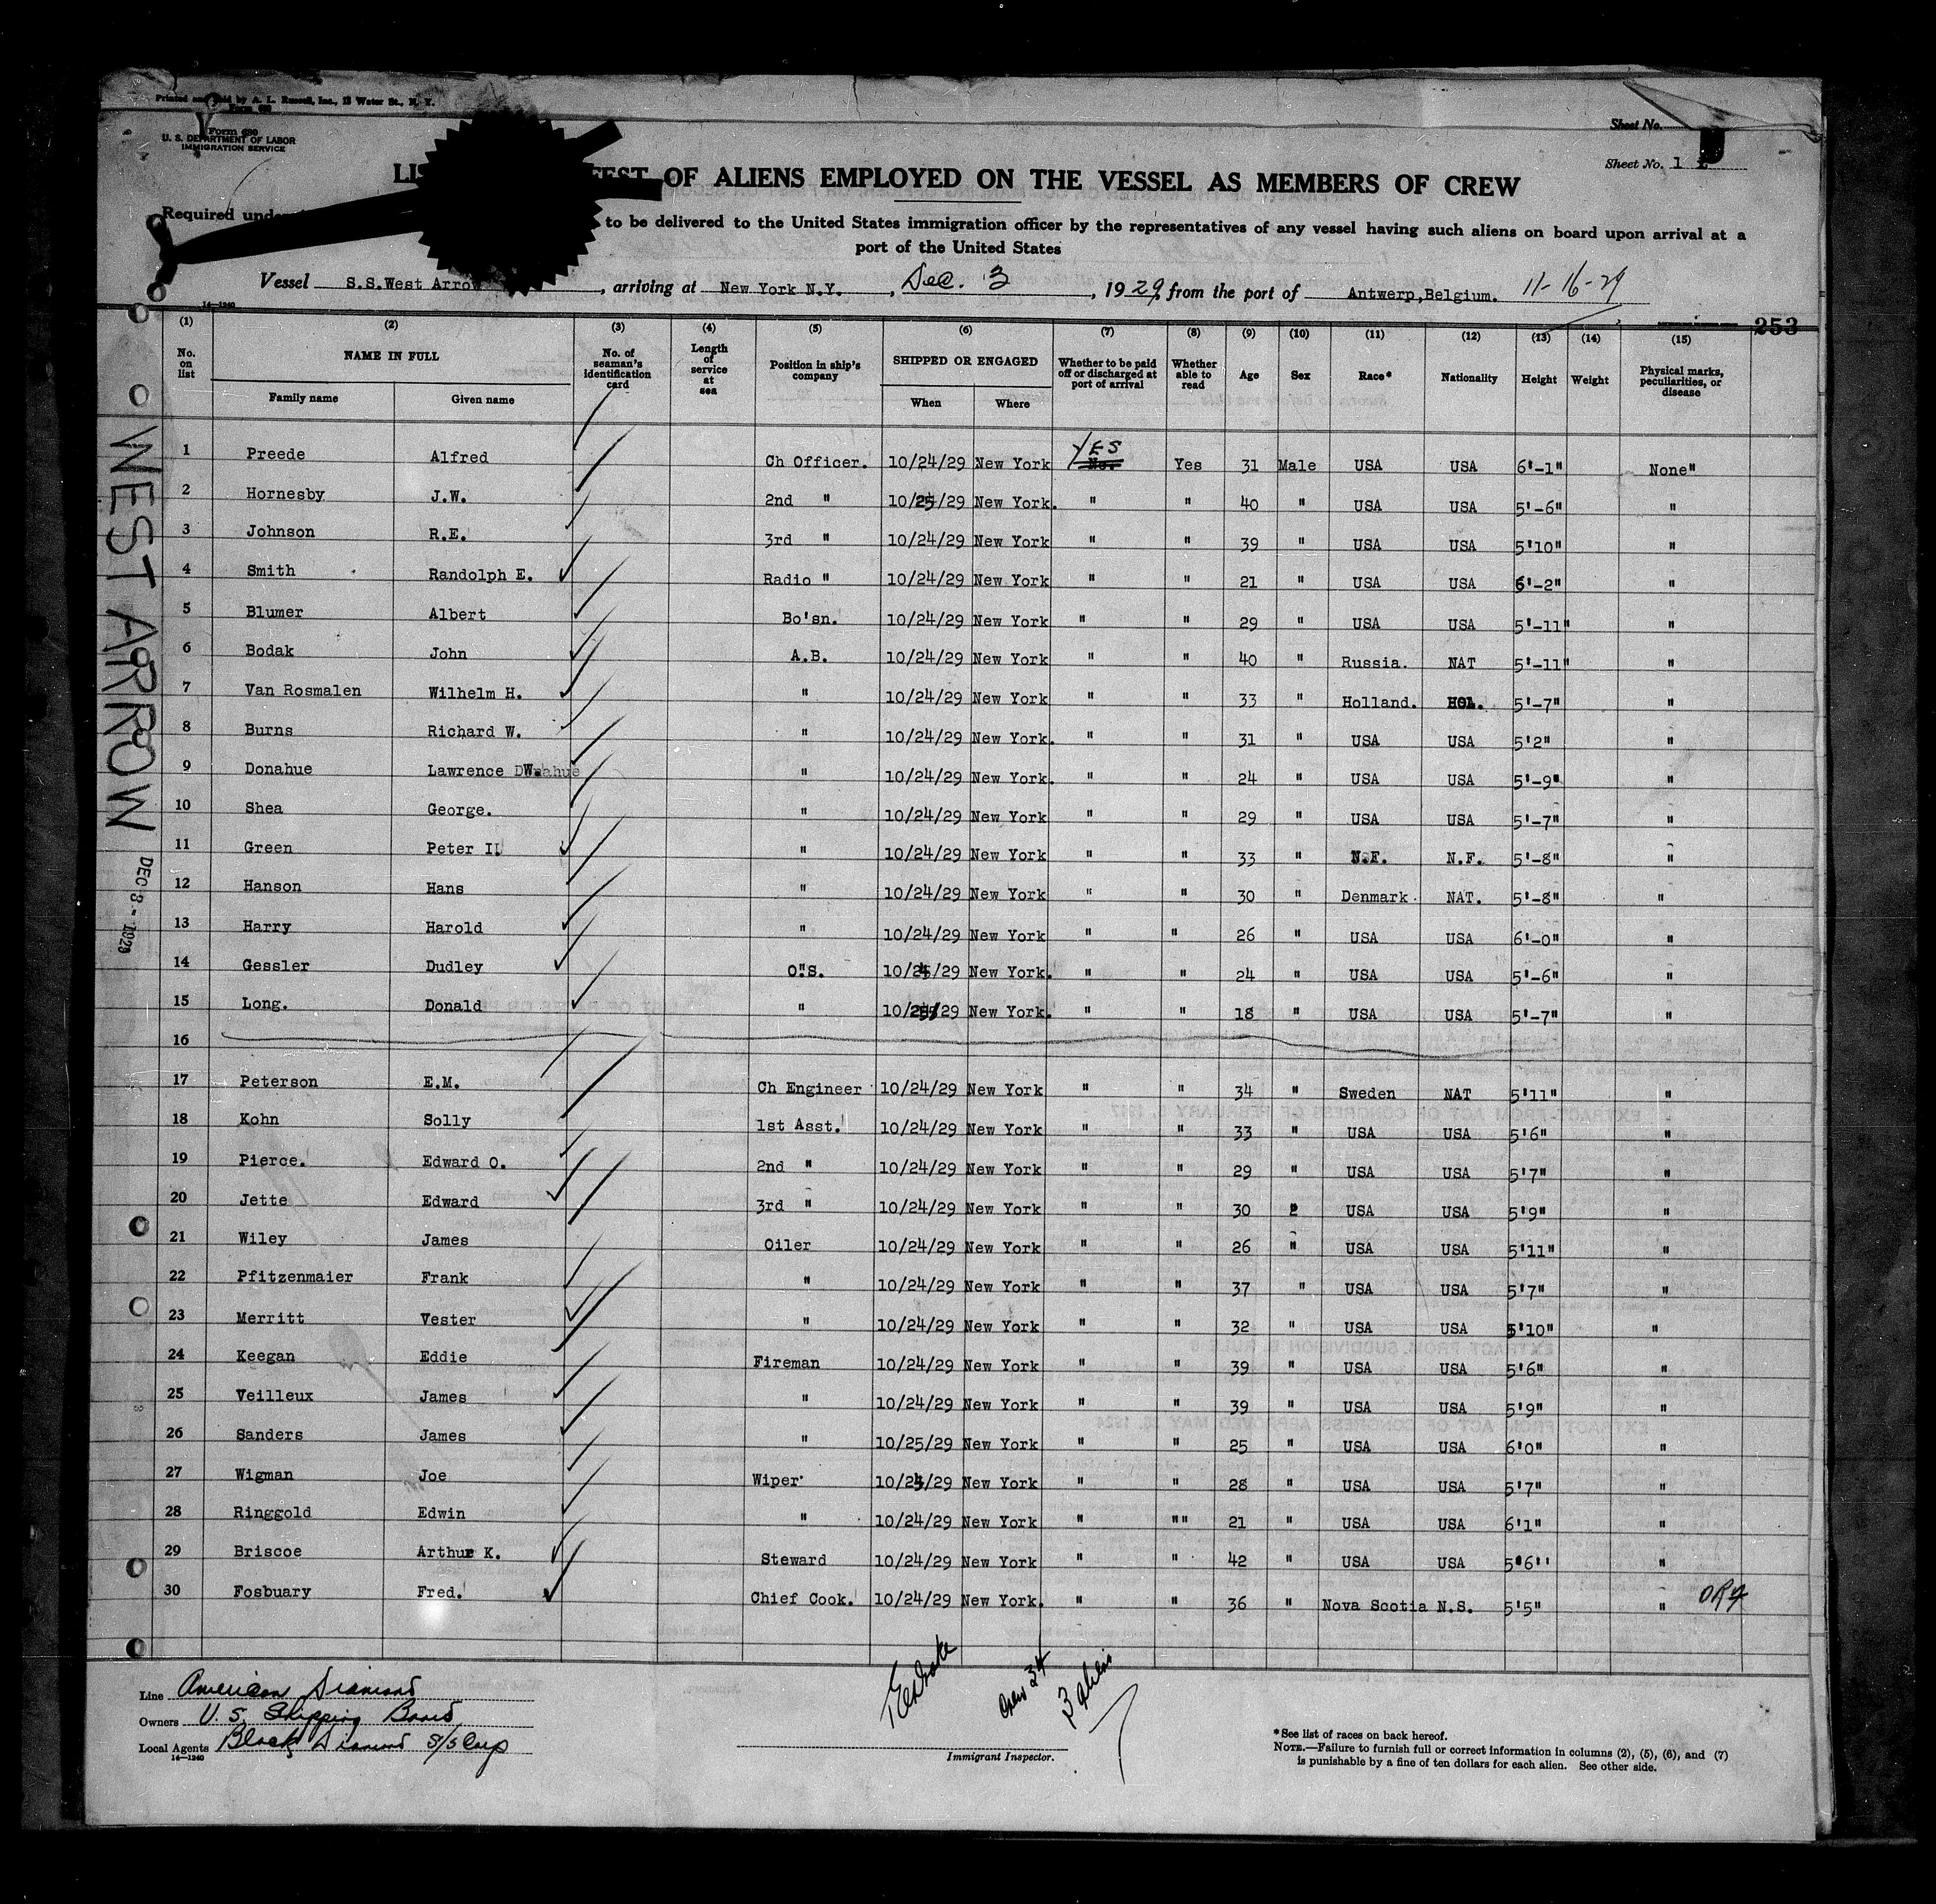 Printed and sold by A. L. Russell, Inc., 13 Water St., N. Y.
Form 680
Form 680
U. S. DEPARTMENT OF LABOR
IMMIGRATION SERVICE
Sheet No.
Sheet No. 1
LIS FEST OF ALIENS EMPLOYED ON THE VESSEL AS MEMBERS OF CREW
Required under to be delivered to the United States immigration officer by the representatives of any vessel having such aliens on board upon arrival at a
port of the United States
Vessel S.S.West Arrow, arriving at New York N.Y., Dec. 3, 1929, from the port of Antwerp,Belgium. 11-16-29
14—1240
253
(1) (2) (3) (4) (5) (6) (7) (8) (9) (10) (11) (12) (13) (14) (15)
No. on list NAME IN FULL Family name Given name No. of seaman's identification card Length of service at sea Position in ship's company SHIPPED OR ENGAGED When Where Whether to be paid off or discharged at port of arrival Whether able to read Age Sex Race* Nationality Height Weight Physical marks, peculiarities, or disease
YES
1 Preede Alfred Ch Officer. 10/24/29 New York No. Yes 31 Male USA USA 6'-1" None"
2 Hornesby J.W. 2nd " 10/25/29 New York. " " 40 " USA USA 5'-6" "
3 Johnson R.E. 3rd " 10/24/29 New York " " 39 " USA USA 5'10" "
4 Smith Randolph E. Radio " 10/24/29 New York " " 21 " USA USA 6'-2" "
5 Blumer Albert Bo'sn. 10/24/29 New York " " 29 " USA USA 5'-11" "
6 Bodak John A.B. 10/24/29 New York " " 40 " Russia. NAT 5'-11" "
7 Van Rosmalen Wilhelm H. " 10/24/29 New York " " 33 " Holland. HOL. 5'-7" "
8 Burns Richard W. " 10/24/29 New York. " " 31 " USA USA 5'2" "
9 Donahue Lawrence W. " 10/24/29 New York. " " 24 " USA USA 5'-9" "
10 Shea George. " 10/24/29 New York " " 29 " USA USA 5'-7" "
11 Green Peter II " 10/24/29 New York " " 33 " N.F. N.F. 5'-8" "
12 Hanson Hans " 10/24/29 New York " " 30 " Denmark. NAT. 5'-8" "
13 Harry Harold " 10/24/29 New York " " 26 " USA USA 6'-0" "
14 Gessler Dudley O"S. 10/24/29 New York. " " 24 " USA USA 5'-6" "
15 Long. Donald " 10/ /29 New York. " " 18 " USA USA 5'-7" "
16
17 Peterson E.M. Ch Engineer 10/24/29 New York " " 34 " Sweden NAT 5'11" "
18 Kohn Solly 1st Asst. 10/24/29 New York " " 33 " USA USA 5'6" "
19 Pierce. Edward O. 2nd " 10/24/29 New York " " 29 " USA USA 5'7" "
20 Jette Edward 3rd " 10/24/29 New York " " 30 USA USA 5'9" "
21 Wiley James Oiler 10/24/29 New York " " 26 " USA USA 5'11" "
22 Pfitzenmaier Frank " 10/24/29 New York " " 37 " USA USA 5'7" "
23 Merritt Vester " 10/24/29 New York " " 32 " USA USA 5'10" "
24 Keegan Eddie Fireman 10/24/29 New York " " 39 " USA USA 5'6" "
25 Veilleux James " 10/24/29 New York " " 39 " USA USA 5'9" "
26 Sanders James " 10/25/29 New York " " 25 " USA USA 6'0" "
27 Wigman Joe Wiper 10/24/29 New York " " 28 " USA USA 5'7" "
28 Ringgold Edwin " 10/24/29 New York " "" 21 " USA USA 6'1" "
29 Briscoe Arthur K. Steward 10/24/29 New York " " 42 " USA USA 5'6'' "
30 Fosbuary Fred. Chief Cook. 10/24/29 New York. " " 36 " Nova Scotia N.S. 5'5" "
WEST ARROW
DEC 3 - 1929
Line American Diamond
Owners U. S. Shipping Board
Local Agents Black Diamond S/S Corp
14—1240
Crew 34
3 aliens
Immigrant Inspector.
*See list of races on back hereof.
NOTE.—Failure to furnish full or correct information in columns (2), (5), (6), and (7)
is punishable by a fine of ten dollars for each alien. See other side.